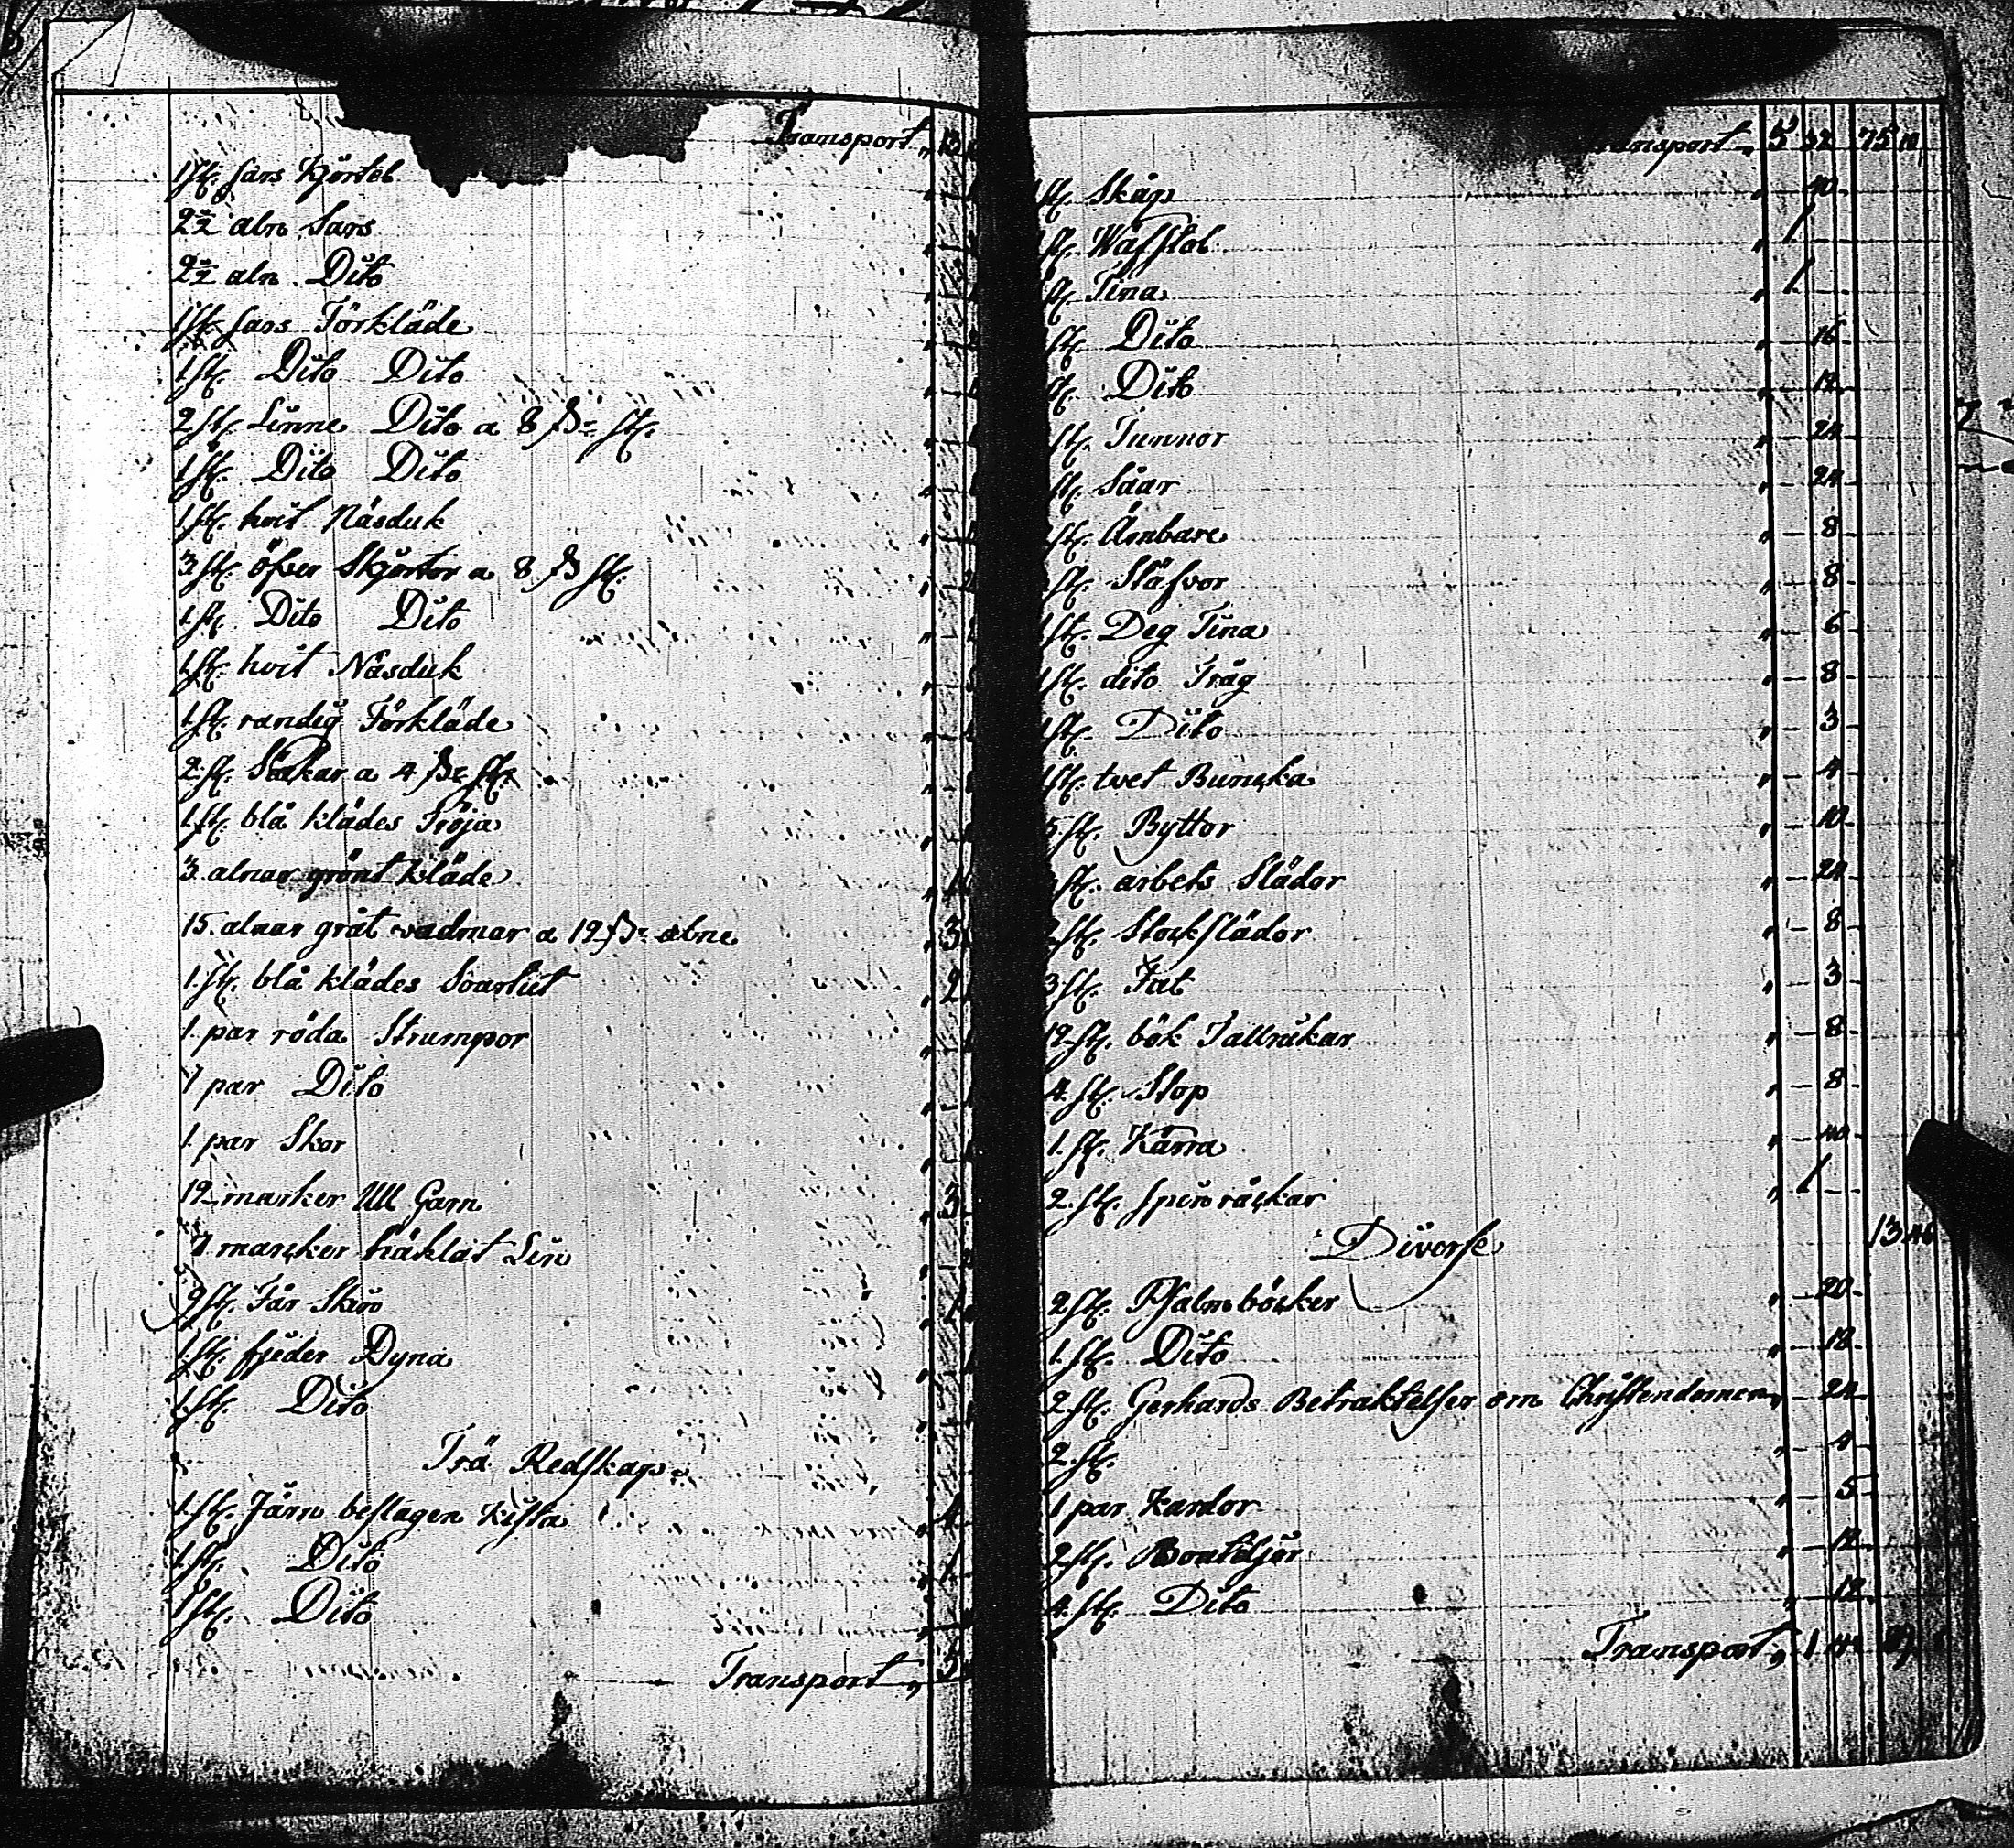 Transport „ 13
1 st. sars Kjortel „
2 1/2 aln Sars „
2 1/2 aln Dito „
1 st. sars Förkläde „
1 st. Dito Dito „
2 st. Linne Dito a 8 ß st. „
1 st. Dito Dito „
1 st. hvit Näsduk „
3 st. öfver Skjortor a 8 ß st. „
1 st. Dito Dito „
1 st. hvit Näsduk „
1 st. randig Förkläde „
2 st. Lakar a 4 ß st. „
1 st. blå klädes Tröja „
3 alnar grönt Kläde „
15. alnar gråt vadmar a 12 ß alne „ 3
1. st. blå klädes „ 2
1. par röda Strumpor „
7 par Dito „
1. par Skor „
12 marker Ull Garn „ 3
7 marcker häklat Lin „
9 st. Får Skin „ 1
1 st. fjeder Dyna „
1 st. Dito „
Trä Redskap
1. st. Järn beslagen Kista „ 1
1 st. Dito „ 1
1 st. Dito „
Transport „ 5
Transport „ 5 32 75 10
st. Skåp „ 40
st. Wäfstol „ 1
st. Tina „ 1
st. Dito „ 16
st. Dito „ 12
st. Tunnor „ 24
st. Såar „ 24
st. Ämbare „ 8
st. Stäfvor „ 8
1 st. Deg Tina „ 6
1 st. dito Tråg „ 8
1 st. Dito „ 3
1 st. tvet Buncka „ 4
5 st. Byttor „ 10
st. arbets Slädor „ 24
2 st. Stockslädor „ 8
3 st. Fat „ 3
12 st. bök Tallrikar „ 8
4. st. Stop „ 8
1. st. Kärra „ 40
2. st. spin råckar „ 1
Diverse 13 46
2 st. Psalmböcker „ 20
1. st. Dito „ 12
2. st. Gerhards Betraktelser om Christendomen „ 24
2. st. „ 4
1 par Kardor „ 5
2. st. Boutelljer „ 12
4. st. Dito „ 12
Transport „ 1